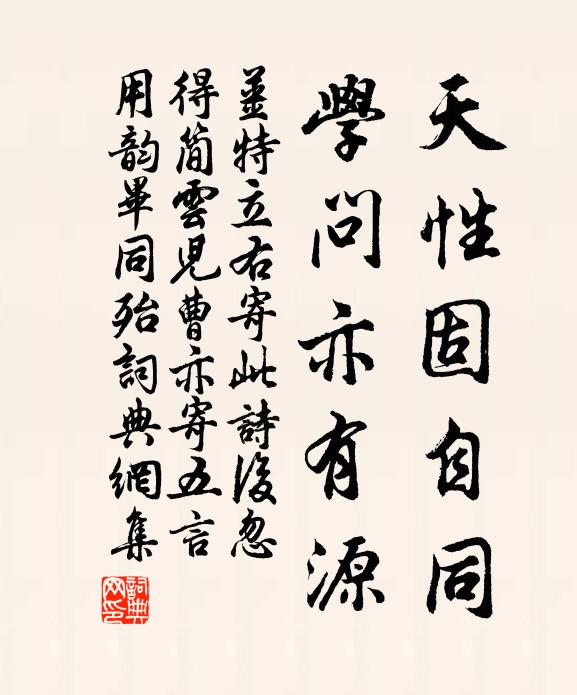 天性固自同
學問亦有源
薑特立右寄此詩後忽
得簡雲兒曹亦寄五言
用韵畢同殆詞典網集
詞典
网印